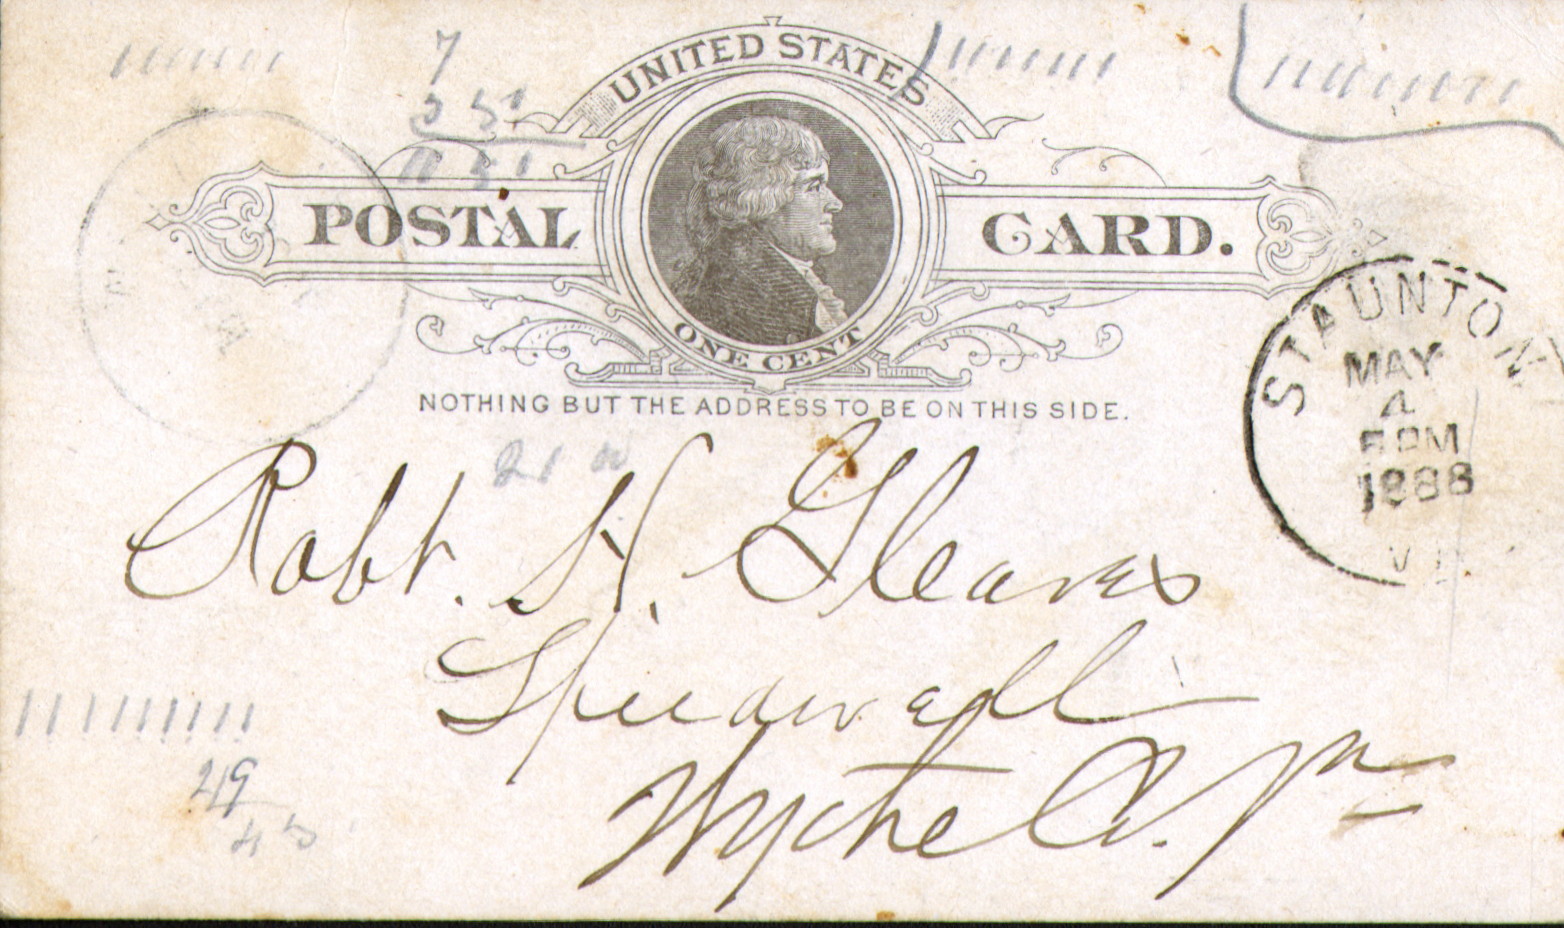 UNITED STATES
POSTAL CARD.
ONE CENT
NOTHING BUT THE ADDRESS TO BE ON THIS SIDE.
STAUNTON
MAY
4
5 PM
1888
VA
7
Robt. H. Gleaves
Speedwell
Wythe Co. Va